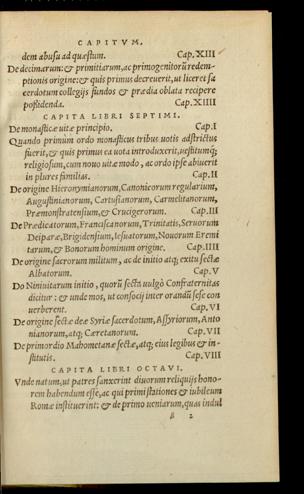 CAPITVM.
dem abusu ad quæstum. Cap.XIII
De decimarum: & primitiarum, ac primogenitorũ redem-
ptionis origine: & quis primus decreuerit, ut liceret sa
cerdotum collegijs fundos & prædia oblata recipere
possidenda. Cap.XIIII
CAPITA LIBRI SEPTIMI.
De monasticæ uitæ principio. Cap.I
Quando primum ordo monasticus tribus uotis adstrictus
fuerit, & quis primus ea uota introduxerit, uestitumq;
religiosum, cum nouo uitæ modo, ac ordo ipse abiuerit
in plures familias. Cap.II
De origine Hieronymianorum, Canonicorum regularium,
Augustinianorum, Cartusianorum, Carmelitarum,
Præmonstratensium, & Crucigerorum. Cap.III
De Prædicatorum, Franciscanorum, Trinitatis, Seruorum
Deiparæ, Brigidensium, Iesuatorum, Nouorum Eremi
tarum, & Bonorum hominum origine. Cap.IIII
De origine sacrorum militum, ac de initio atq; exitu sectæ
Albatorum. Cap.V
De Niniuitarum initio, quorũ secta uulgò Confraternitas
dicitur: & unde mos, ut consocij inter orandũ sese con
uerberent. Cap.VI
De origine sectæ deæ Syriæ sacerdotum, Assyriorum, Anto
nianorum, atq; Cæretanorum. Cap.VII
De primordio Mahometanæ sectæ, atq; eius legibus & in-
stitutis. Cap.VIII
CAPITA LIBRI OCTAVI.
Vnde natum, ut patres sanxerint diuorum reliquijs hono-
rem habendum esse, ac qui primi stationes & iubileum
Romæ instituerint: & de primo ueniarum, quas indul
β 2